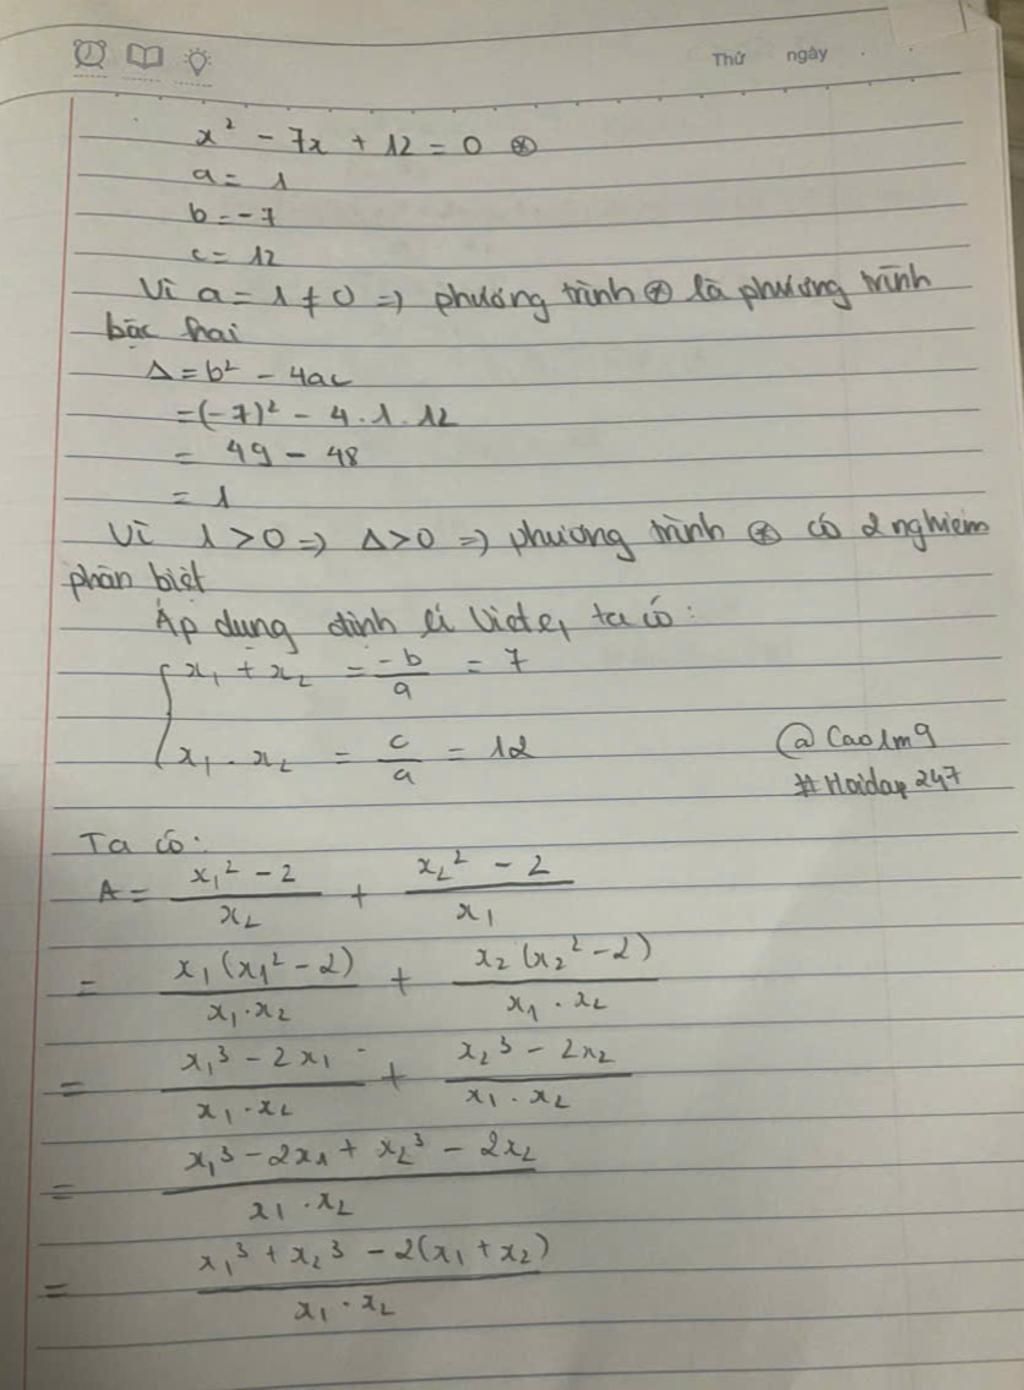 Thứ ngày
x² - 7x + 12 = 0 ⊛
a = 1
b = -7
c = 12
Vì a = 1 ≠ 0 => phương trình ⊛ là phương trình
bậc hai
Δ = b² - 4ac
= (-7)² - 4.1.12
= 49 - 48
= 1
Vì 1 > 0 => Δ > 0 => phương trình ⊛ có 2 nghiem
phân biệt
Áp dụng định lí Viete, ta có:
{ x₁ + x₂ = -b/a = 7
x₁ . x₂ = c/a = 12
@Cao1m9
#Hoidap247
Ta có:
A = (x₁² - 2)/x₂ + (x₂² - 2)/x₁
= x₁(x₁² - 2)/(x₁.x₂) + x₂(x₂² - 2)/(x₁.x₂)
= (x₁³ - 2x₁)/(x₁.x₂) + (x₂³ - 2x₂)/(x₁.x₂)
= (x₁³ - 2x₁ + x₂³ - 2x₂)/(x₁.x₂)
= (x₁³ + x₂³ - 2(x₁ + x₂))/(x₁.x₂)